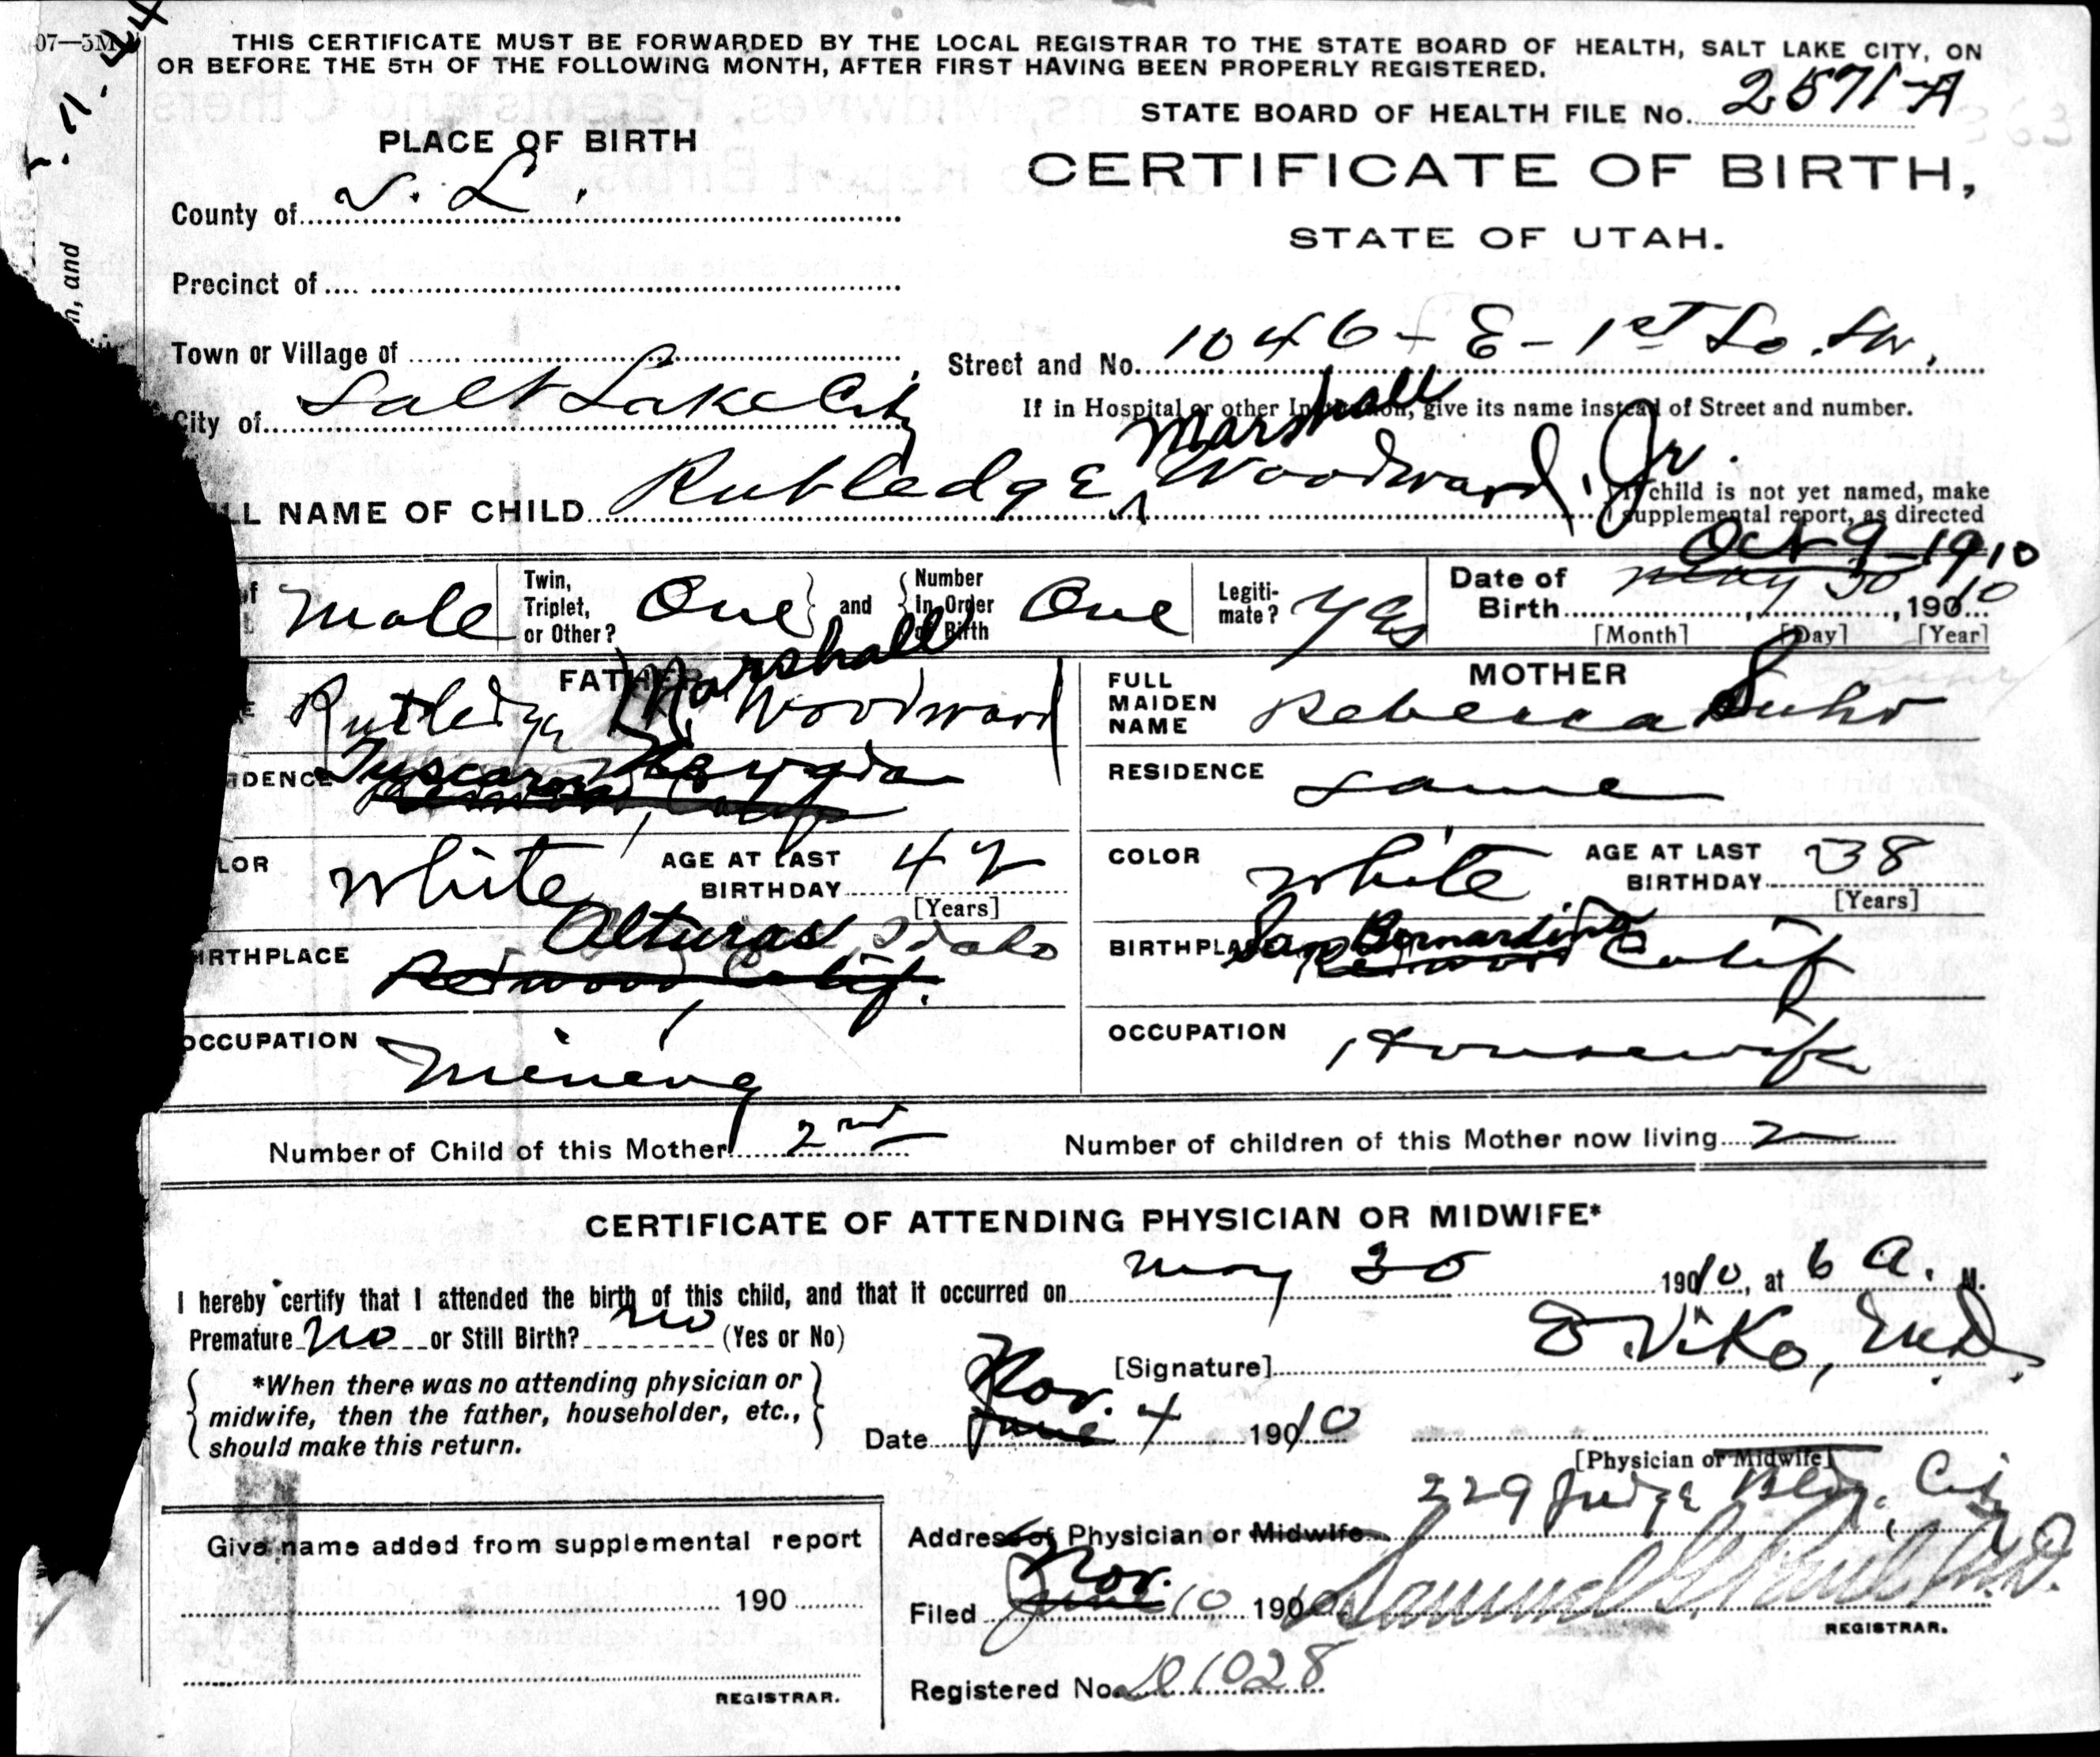 07—5M
THIS CERTIFICATE MUST BE FORWARDED BY THE LOCAL REGISTRAR TO THE STATE BOARD OF HEALTH, SALT LAKE CITY, ON
OR BEFORE THE 5TH OF THE FOLLOWING MONTH, AFTER FIRST HAVING BEEN PROPERLY REGISTERED.
STATE BOARD OF HEALTH FILE No. 2571-A
PLACE OF BIRTH
CERTIFICATE OF BIRTH,
STATE OF UTAH.
County of S. L.
Precinct of
n, and
Town or Village of
Street and No. 1046 - E - 1st So.
City of Salt Lake City
If in Hospital or other Institution, give its name instead of Street and number.
Marshall
LL NAME OF CHILD Rutledge ^ Woodward, Jr.
If child is not yet named, make
supplemental report, as directed
Oct 9-1910
Male
Twin, Triplet, or Other? One and Number in Order of Birth One
Legiti-mate? Yes
Date of Birth May 30, 1910
[Month] [Day] [Year]
FATHER
Marshall
Rutledge M. Woodward
MOTHER
FULL MAIDEN NAME Rebecca Suhr
IDENCE Tuscarora Nevada
Redwood, Calif
RESIDENCE same
LOR White
AGE AT LAST BIRTHDAY 42
[Years]
COLOR White
AGE AT LAST BIRTHDAY 38
[Years]
Alturas Idaho
IRTHPLACE Redwood, Calif.
San Bernardino
BIRTHPLACE Redwood Calif
OCCUPATION Mining
OCCUPATION Housewife
Number of Child of this Mother 2nd
Number of children of this Mother now living 2
CERTIFICATE OF ATTENDING PHYSICIAN OR MIDWIFE*
I hereby certify that I attended the birth of this child, and that it occurred on May 30 1910, at 6 A. M.
Premature No or Still Birth? No (Yes or No)
[Signature] E Viko, M.D.
*When there was no attending physician or
midwife, then the father, householder, etc.,
should make this return.
Nov.
Date June 4 1910
[Physician or Midwife]
Address of Physician or Midwife 229 Judge Bldg. City
Give name added from supplemental report
190
REGISTRAR.
Nov.
Filed June 10 1910 Samuel G. Paul M.D.
REGISTRAR.
Registered No. D1028